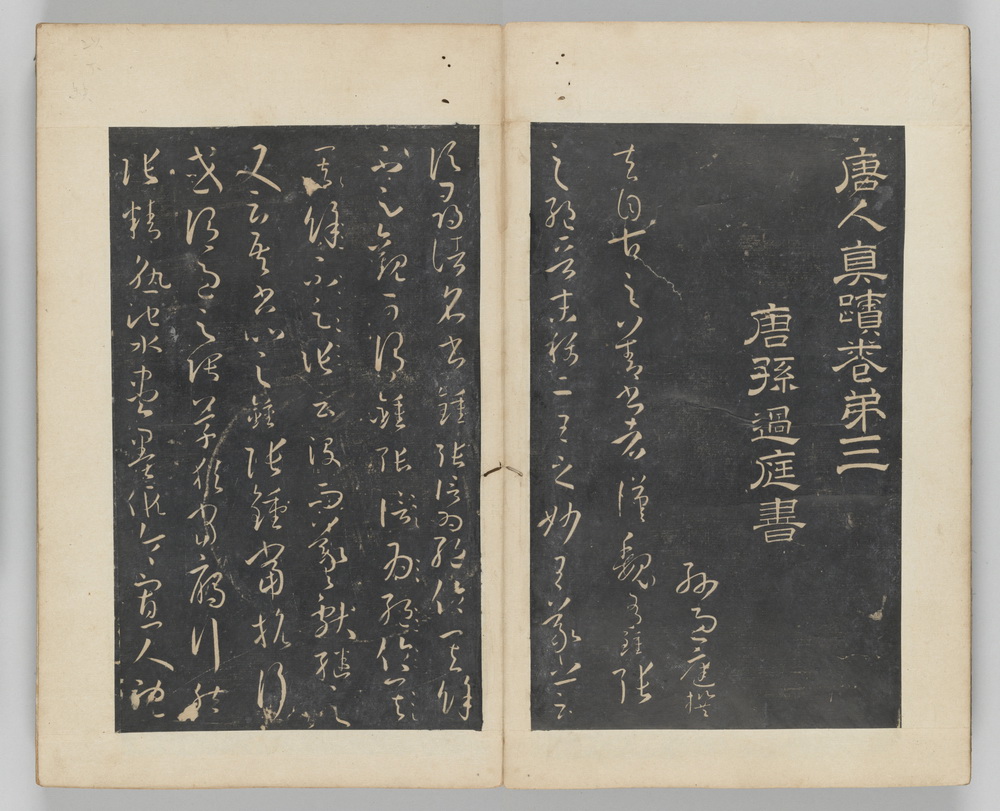 唐人真蹟卷弟三
唐孫過庭書
孫過庭撰
夫自古之善書者漢魏有鍾張
之絕晉末稱二王之妙王羲之云
頃尋諸名書鍾張信為絕倫其餘
不足觀可謂鍾張信為絕倫其
餘不足張云沒而羲獻繼之
又云吾書比之鍾張鍾當抗行
或謂過之張草猶當鴈行然
張精熟池水盡墨假令寡人耽